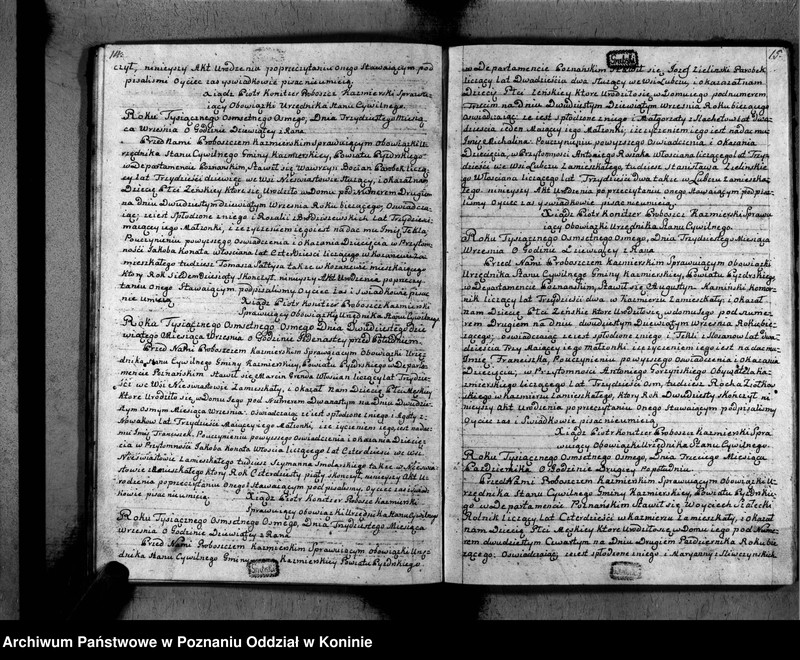 14.
czył, ninieyszy Akt Urodzenia po przeczytaniu onego Stawaiącym pod
pisalismy Oyciec zas y swiadkowie pisac nieumieią.
Xiądz Piotr Konitzer Proboszcz Kazmierski Sprawu
iący Obowiązki Urzędnika Stanu Cywilnego.
Roku Tysiącznego Osmsetnego Osmego, Dnia Trzydziestego Miesią
ca Wrzesnia O Godzinie Dziewiątey z Rana.
Przed Nami Proboszczem Kazmierskim Sprawuiącym Obowiązki U
rzędnika Stanu Cywilnego Gminy Kazmierskiey, Powiatu Pyzdrskiego
w Departamencie Poznanskim, Stawił się Wawrzyn Bocian Parobek licz
cy lat Trzydziesci dziewięc, we Wsi Nieswiastowie Służący, i okazał nam
Dziecię Płci Zenskiey ktore się Urodziło w Domu pod Numerem Drugim
na Dniu Dwudziestym dziewiątym Wrzesnia Roku bieżącego, Oswiadcza
iąc; ze iest spłodzone z niego i Rozalii z Lat Trzydziesci
maiącey iego Małzonki, i ze zyczeniem iego iest nadac mu Jmię Tekla;
Po uczynieniu powyszego Oswiadczenia i okazania Dziecięcia w Przytom
nosci Jakuba Konata Włosciana liczącego lat Czterdziesci w
mieszkałego tudziesz Tomasza także w mieszkaiącego
ktory Rok Siedemdziesiąty Skonczył. ninieyszy Akt Urodzenia po przeczy
taniu Onego Stawaiącym podpisalismy Oyciec zas i swiadkowie pisac
nie umieią. Xiądz Piotr Konitzer Proboszcz Kazmierski
Sprawuiący Obowiązki Urzędnika Stanu Cywilnego.
Roku Tysiącznego Osmsetnego Osmego Dnia Dwudziestego Dzie
wiątego Miesiąca Wrzesnia O Godzinie Jedenastey przed Południem.
Przed Nami Proboszczem Kazmierskim Sprawuiącym Obowiązki Urzę
dnika Stanu Cywilnego Gminy Kazmierskiey, Powiatu Pyzdrskiego w Departa
mencie Poznanskim. Stawił się Marcin Włosian liczący lat Trzydzie
sci we Wsi Nieswiastowie Zamieszkały, i Okazał nam Dziecię Płci Męskiey
ktore Urodziło się w Domu Jego pod Numerem Dwunastym na Dniu Dwudzie
stym Osmym Miesiąca Wrzesnia. Oswiadczaiąc ze iest spłodzone z niego i Agaty z
Nowakow lat Trzydziesci Maiącey iego Małzonki, i ze zyczeniem iego iest nadac
mu Jmię Franciszek, Po uczynieniu powyszego Oswiadczenia i okazania Dziecię
cia w Przytomnosci Jakoba Konata Włosciana liczącego lat Czterdziesci we wsi
Nieswiastowie Zamieszkałego tudziesz Szymana Smolarskiego także w Nieswia
stowie zamieszkałego ktory Rok Czterdziesty piąty skonczył, ninieyszy Akt U
rodzenia po przeczytaniu Onego Stawaiącym podpisalismy, Oyciec zas i swiad
kowie pisac nieumieią. Xiądz Piotr Konitzer Proboszcz Kazmierski
Sprawuiący obowiązki Urzędnika Stanu Cywilnego
Roku Tysiącznego Osmsetnego Osmego, Dnia Trzydziestego Miesiąca
Wrzesnia O Godzinie Dziewiątey z Rana
Przed Nami Proboszczem Kazmierskim Sprawuiącym Obowiązki Urzę
dnika Stanu Cywilnego Gminy Kazmierskiey Powiatu Pyzdrskiego.
15.
w Departamencie Poznanskim Stawił się Jozef Zielinski Parobek
liczący lat Dwadziescia dwa Służący we Wsi Lubcu, i okazał nam
Dziecię Płci Zenskiey ktore Urodziło się w Domu iego pod numerem
Trzecim na Dniu Dwudziestym Dziewiątym Wrzesnia Roku bieżącego
Oswiadczaiąc ze iest spłodzone z niego i Małgorzaty z lat dwa
dziescia ieden Maiącey iego Małzonki; i ze zyczeniem iego iest nadac mu
Jmię Michalina. Po uczynieniu powyszego Oswiadczenia i okazania
Dziecięcia, w Przytomnosci Antoniego Włosciana liczącego lat Trzy
dziesci we Wsi Lubcu Zamieszkałego, tudziesz Stanisława Zielinskie
go Włosciana liczącego lat Trzydziesci Dwa także w Lubcu Zamieszka
łego. ninieyszy Akt Urodzenia po przeczytaniu onego Stawaiącym podpisa
lismy Oyciec zas y swiadkowie pisac nieumieią,
Xiądz Piotr Konitzer Proboszcz Kazmierski Sprawu
iący Obowiązki Urzędnika Stanu Cywilnego.
Roku Tysiącznego Osmsetnego Osmego, Dnia Trzydziestego Miesiąca
Wrzesnia O Godzinie Dziewiątey z Rana
Przed Nami Proboszczem Kazmierskim Sprawuiącym Obowiązki
Urzędnika Stanu Cywilnego Gminy Kazmierskiey, Powiatu Pyzdrskiego,
w Departamencie Poznanskim, Stawił się Augustyn Kaminski Komor
nik liczący lat Trzydziesci dwa w Kazmierzu Zamieszkały: i okazał
nam Dziecię Płci Zenskie ktore Urodziło się, w domu Jego pod numer
rem Drugiem na dniu dwudziestym Dziewiątym Wrzesnia Roku bie
żącego; oswiadczaiąc ze iest spłodzone z niego i Tekli z lat dwa
dziescia Trzy Maiącey iego małzonki i ze zyczeniem iego iest nadac mu
Jmię Franciszka, Po uczynieniu powyszego Oswiadczenia i okazania
Dziecięcia; w Przytomnosci Antoniego Gorzynskiego Obywatela Ka
zmierskiego liczącego lat Trzydziesci Osm, tudziesz Rocha Ziotko
wskiego w Kazmierzu Zamieszkałego, ktory Rok Dwudziesty skonczył ni
nieyszy Akt Urodzenia po przeczytaniu Onego Stawaiącym podpisalismy
Oyciec zas i Swiadkowie pisac nieumieią.
Xiądz Piotr Konitzer Proboszcz Kazmierski Spra
wuiący Obowiązki Urzędnika Stanu Cywilnego.
Roku Tysiącznego Osmsetnego Osmego, Dnia Trzeciego Miesiąca
Pazdziernika O Godzinie Drugiey Popołudniu
Przed Nami Proboszczem Kazmierskim Sprawuiącym Obowiązki U
rzędnika Stanu Cywilnego Gminy Kazmierskiey, Powiatu Pyzdrskie
go w Departamencie Poznanskim Stawił się Woyciech
Rolnik liczący lat Czterdziesci w Kazmierzu Zamieszkały, i okazał
nam Dziecię Płci Męskiey ktore Urodziło się w Domu iego pod Nume
rem dwudziestym Czwartym na Dniu Drugiem Pazdziernika Roku bie
żącego; Oswiadczaiąc ze iest spłodzone z niego i Maryanny z Sliwczynskich
Archiwum Państwowe w Poznaniu Oddział w Koninie